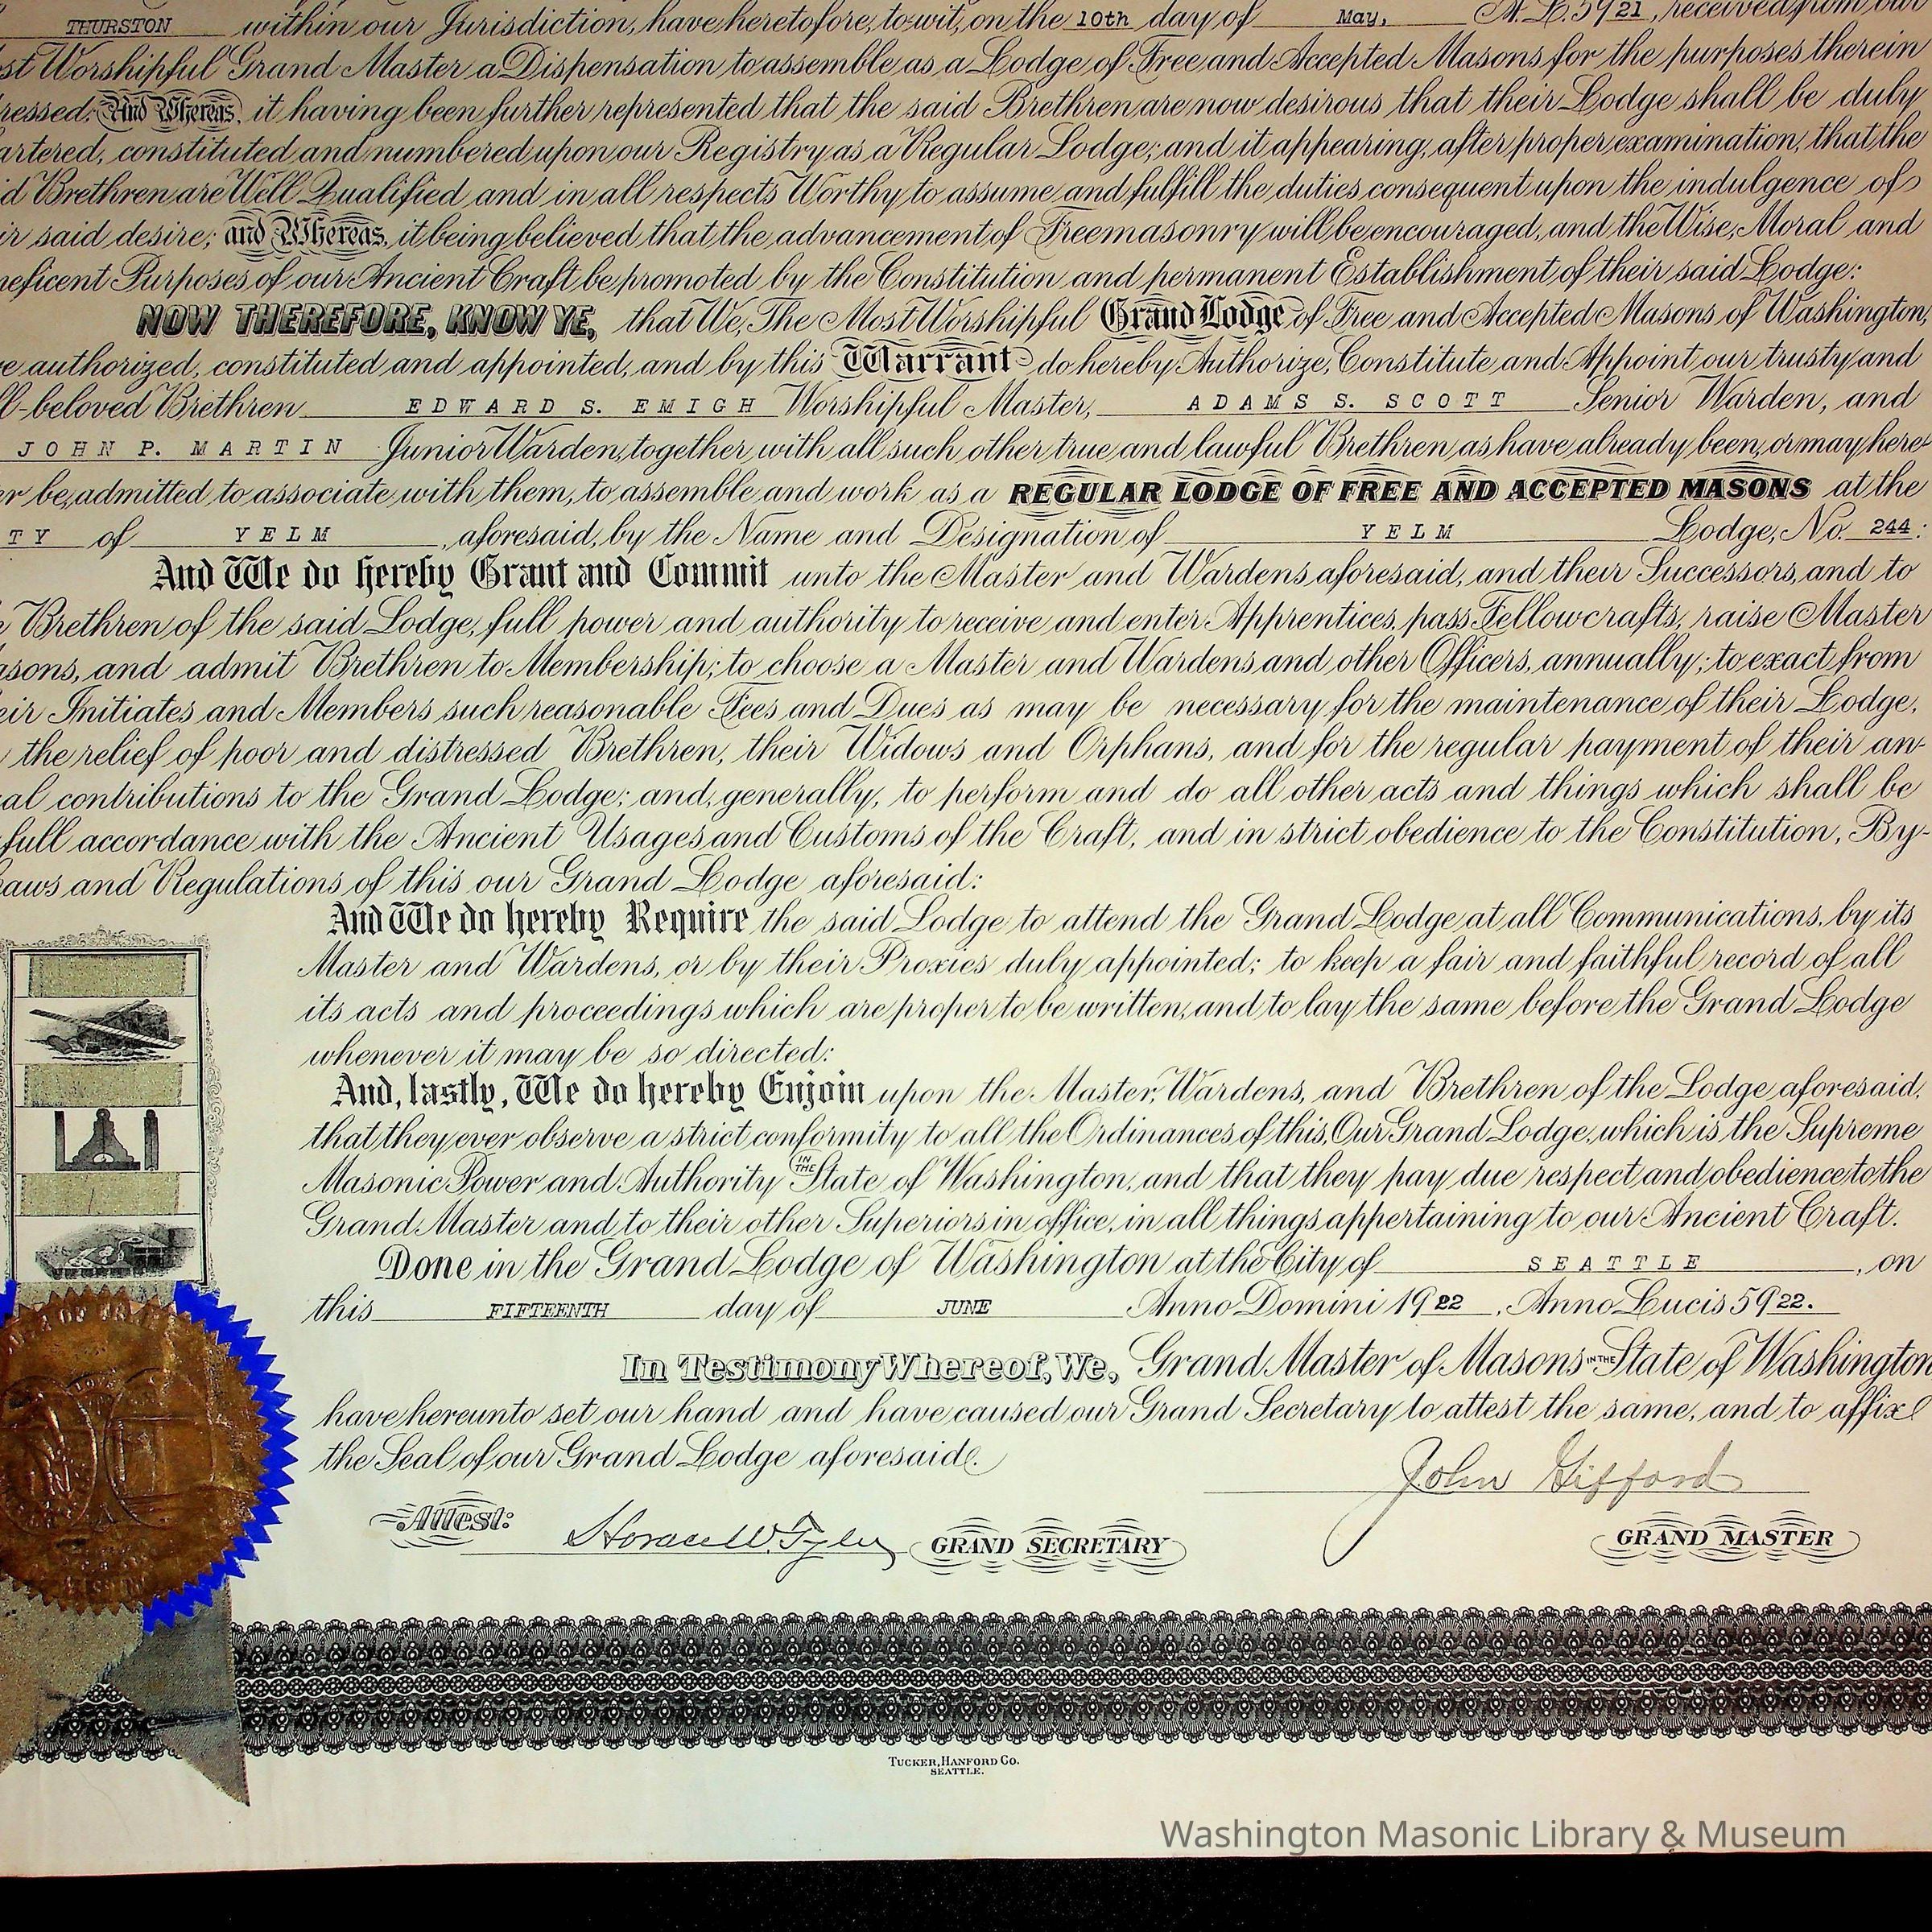 THURSTON within our Jurisdiction, have heretofore, to wit, on the 10th day of May, A. L. 5921, received from our
st Worshipful Grand Master a Dispensation to assemble as a Lodge of Free and Accepted Masons for the purposes therein
ressed: And Whereas, it having been further represented that the said Brethren are now desirous that their Lodge shall be duly
artered, constituted and numbered upon our Registry as a Regular Lodge; and it appearing, after proper examination, that the
d Brethren are Well Qualified and in all respects Worthy to assume and fulfill the duties consequent upon the indulgence of
ir said desire; and Whereas, it being believed that the advancement of Freemasonry will be encouraged, and the Wise, Moral and
neficent Purposes of our Ancient Craft be promoted by the Constitution and permanent Establishment of their said Lodge:
NOW THEREFORE, KNOW YE, that We, The Most Worshipful Grand Lodge of Free and Accepted Masons of Washington,
e authorized, constituted and appointed, and by this Warrant do hereby Authorize, Constitute and Appoint our trusty and
l-beloved Brethren EDWARD S. EMIGH Worshipful Master, ADAMS S. SCOTT Senior Warden, and
JOHN P. MARTIN Junior Warden, together with all such other true and lawful Brethren as have already been, or may here-
er be, admitted to associate with them, to assemble and work as a REGULAR LODGE OF FREE AND ACCEPTED MASONS at the
TY of YELM, aforesaid, by the Name and Designation of YELM Lodge, No. 244:
And We do hereby Grant and Commit unto the Master and Wardens aforesaid, and their Successors, and to
e Brethren of the said Lodge, full power and authority to receive and enter Apprentices, pass Fellowcrafts, raise Master
asons, and admit Brethren to Membership; to choose a Master and Wardens and other Officers, annually; to exact from
eir Initiates and Members such reasonable Fees and Dues as may be necessary for the maintenance of their Lodge,
the relief of poor and distressed Brethren, their Widows and Orphans, and for the regular payment of their an-
al contributions to the Grand Lodge; and, generally, to perform and do all other acts and things which shall be
full accordance with the Ancient Usages and Customs of the Craft, and in strict obedience to the Constitution, By-
aws and Regulations of this our Grand Lodge aforesaid:
And We do hereby Require the said Lodge to attend the Grand Lodge at all Communications, by its
Master and Wardens, or by their Proxies duly appointed; to keep a fair and faithful record of all
its acts and proceedings which are proper to be written, and to lay the same before the Grand Lodge
whenever it may be so directed:
And, lastly, We do hereby Enjoin upon the Master, Wardens, and Brethren of the Lodge aforesaid,
that they ever observe a strict conformity to all the Ordinances of this, Our Grand Lodge, which is the Supreme
Masonic Power and Authority IN THE State of Washington, and that they pay due respect and obedience to the
Grand Master and to their other Superiors in office, in all things appertaining to our Ancient Craft.
Done in the Grand Lodge of Washington at the City of SEATTLE, on
this FIFTEENTH day of JUNE Anno Domini 1922, Anno Lucis 5922.
In Testimony Whereof, We, Grand Master of Masons IN THE State of Washington
have hereunto set our hand and have caused our Grand Secretary to attest the same, and to affix
the Seal of our Grand Lodge aforesaid.
John Gifford
Attest: Horace W. Tyler GRAND SECRETARY GRAND MASTER
TUCKER, HANFORD CO.
SEATTLE.
Washington Masonic Library & Museum